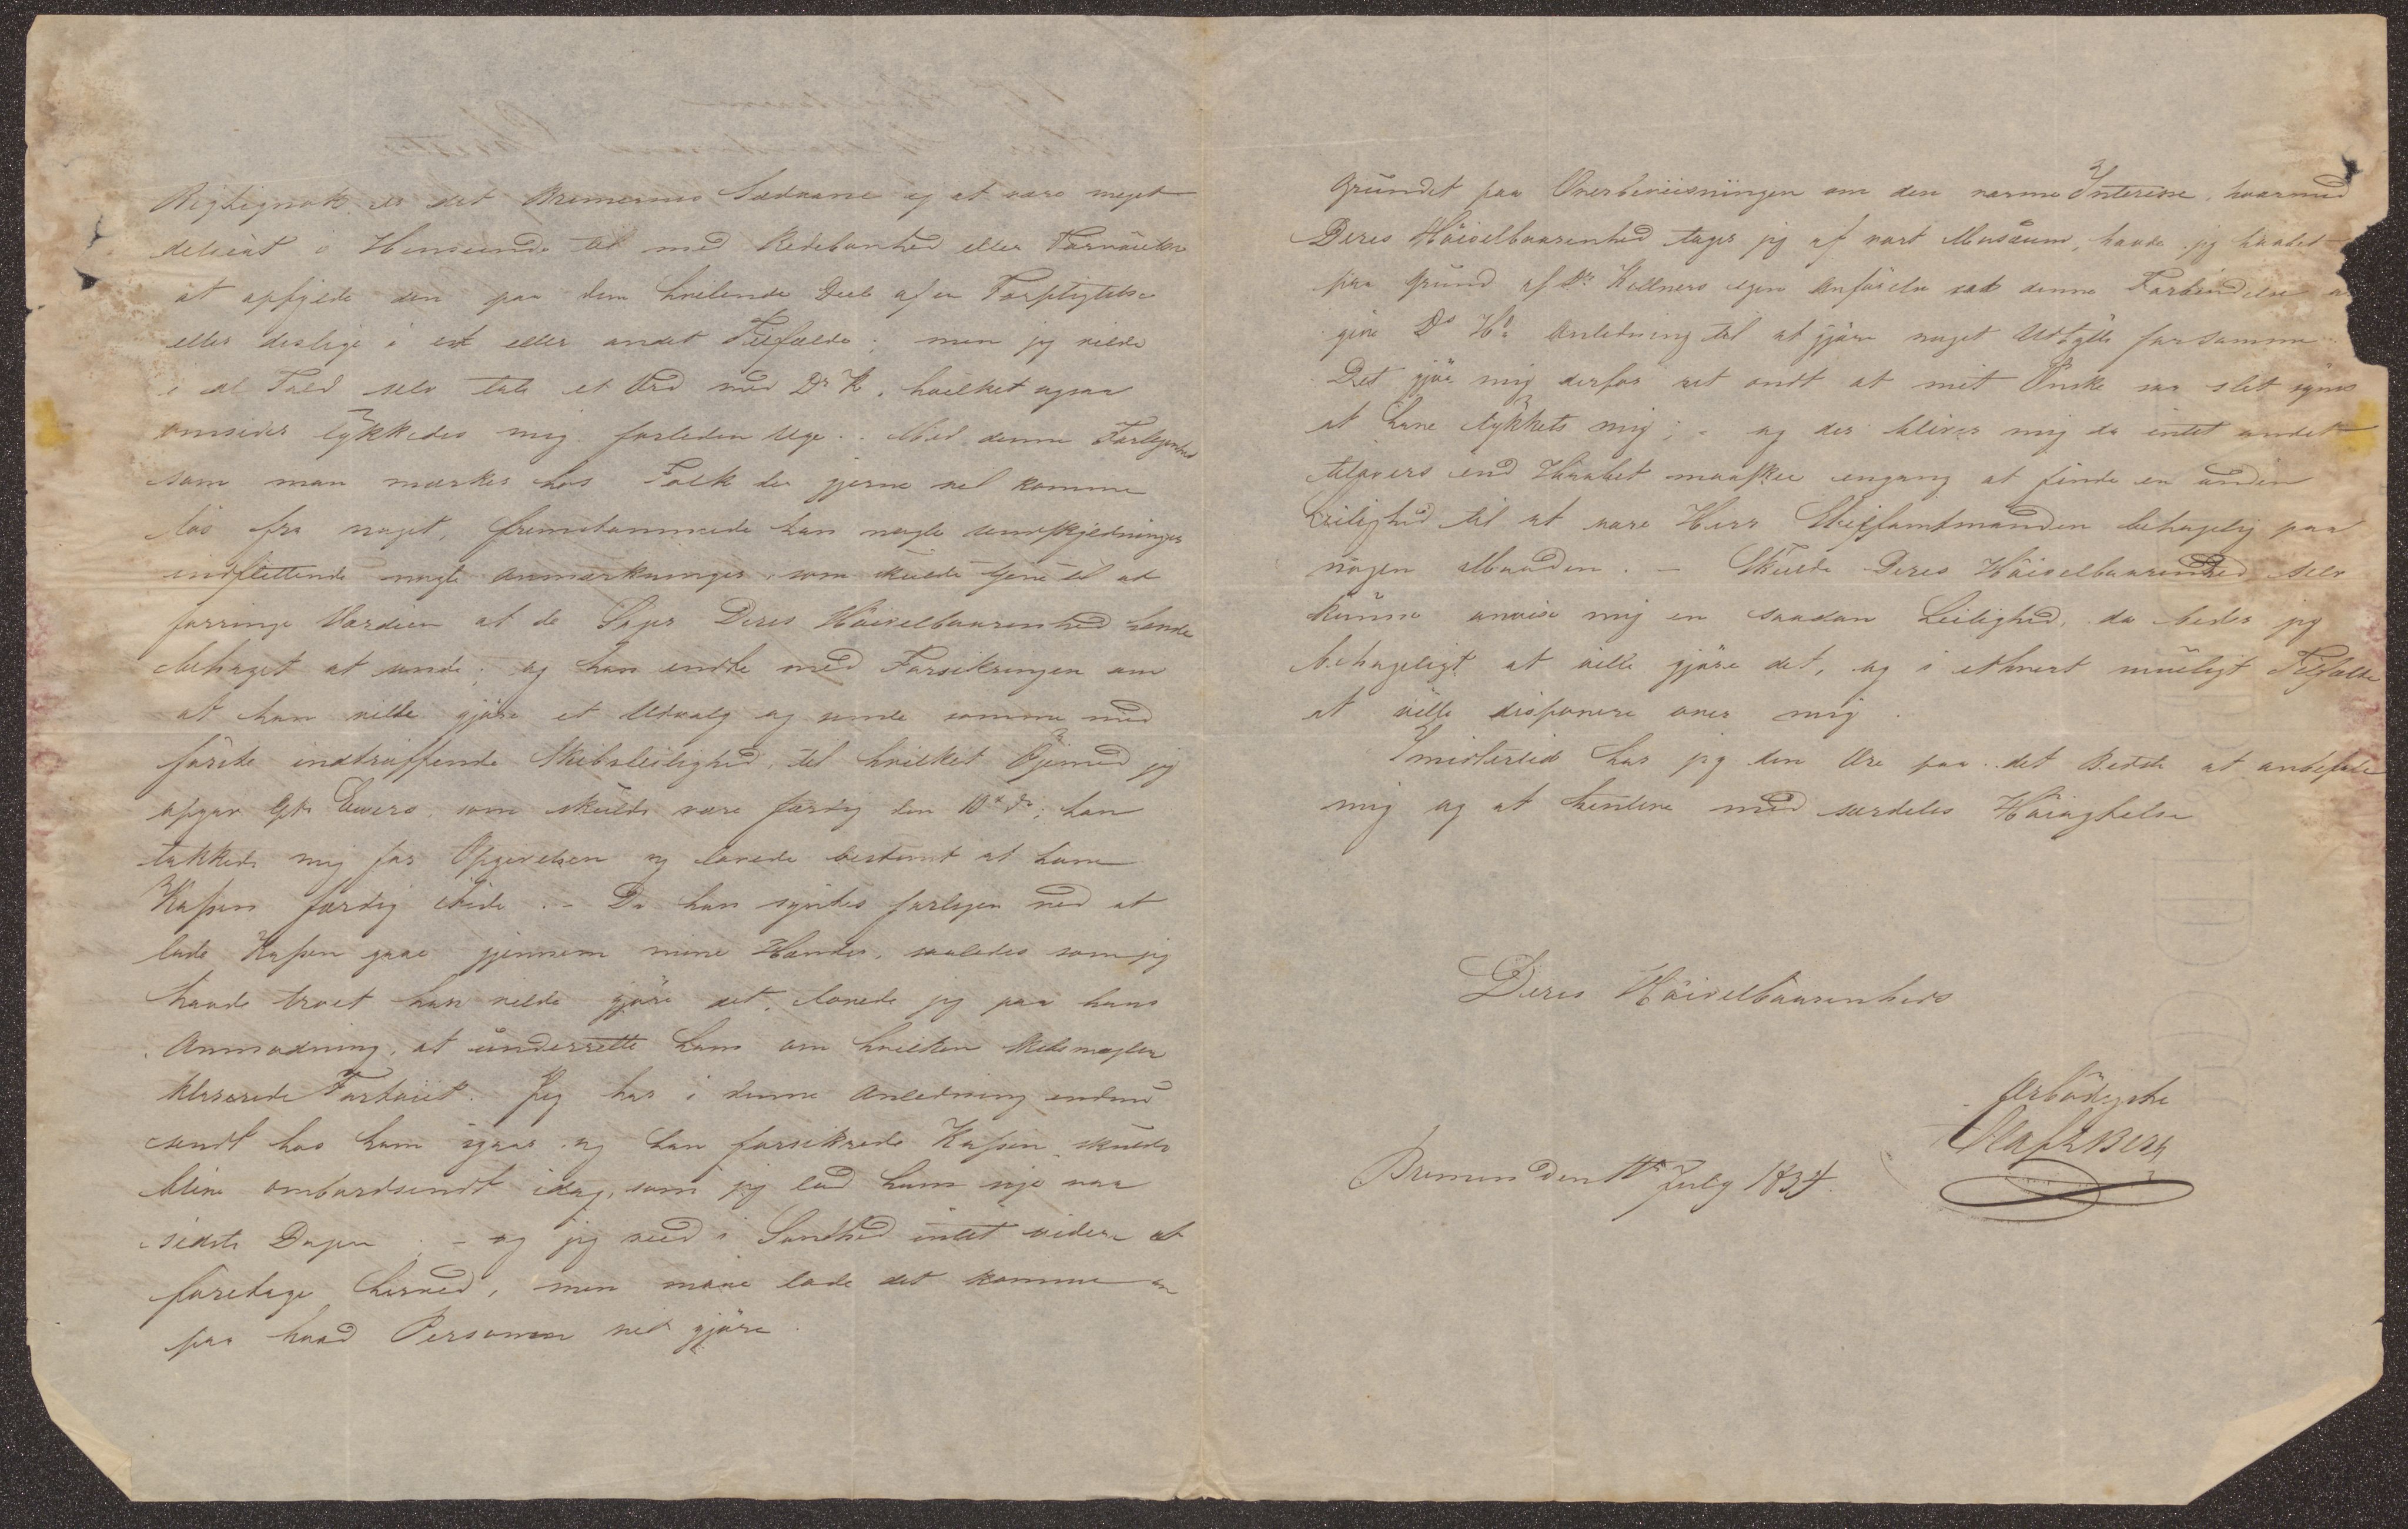 Rigtignok er det Bremernes Sædvane ej at være meget
delicat i Henseende til med Redebonhed eller Fornöielse
at opfylde den paa dem hvilende Deel af en Forpligtelse
eller deslige i et eller andet Tilfælde; men jeg vilde
i al Fald selv tale et Ord med Dr K. hvilket ogsaa
omsider lykkedes mig forleden Uge. Med denne Forlegenhed
som man mærker hos Folk der gjerne vil komme
lös fra noget, fremstammede han nogle Undskyldninger
indflettende nogle Anmærkninger, som skulde tjene til at
forringe Værdien af de Sager Deres Höivelbaarenhed havde
behaget at sende; og han endte med Forsikringen om
at han vilde gjöre et Udvalg og sende samme med
förste indtræffende Skibsleilighed, til hvilket Öjemed jeg
opgav Cpt. Ewers, som skulde være færdig den 10de ds; han
takkede mig for Opgivelsen og lovede bestemt at have
Kassen færdig itide. – Da han syntes forlegen ved at
lade Kassen gaae gjennem mine Hænder, saaledes som jeg
havde troet han vilde gjöre det, lovede jeg paa hans
Anmodning, at underrette ham om hvilken Skibsmægler
klarerede Fartöiet. Jeg har i denne Anledning endnu
sendt hos ham igaar og han forsikrede Kassen skulde
blive ombordsendt idag, som jeg lod ham sige var
sidste Dagen; – og jeg veed i Sandhed intet videre at
foretage herved, men maae lade det komme an
paa hvad Personen vil gjöre.
Grundet paa Overbeviisningen om den varme Interesse, hvormed
Deres Höivelbaarenhed tager sig af vort Musæum, havde jeg haabet
paa Grund af Dr Kellners egen Anförelse ved denne Forbindelse at
give Ds Hö. Anledning til at gjöre noget Udbytte for samme.
Det gjör mig derfor ret ondt at mit Önske saa slet synes
at have lykkets mig; – og der bliver mig da intet andet
tilovers end Haabet maaskee engang at finde en anden
Leilighed til at være Herr Stiftamtmanden behagelig paa
nogen Maade. – Skulde Deres Höivelbaarenhed selv
kunne anvise mig en saadan Leilighed, da beder jeg
behageligt at ville gjöre det, og i ethvert mueligt Tilfælde
at ville disponere over mig.
Imidlertid har jeg den Ære paa det Bedste at anbefale
mig og at henleve med særdeles Höiagtelse
Deres Höivelbaarenheds
Ærbödigste
Bremen den 11te July 1834.